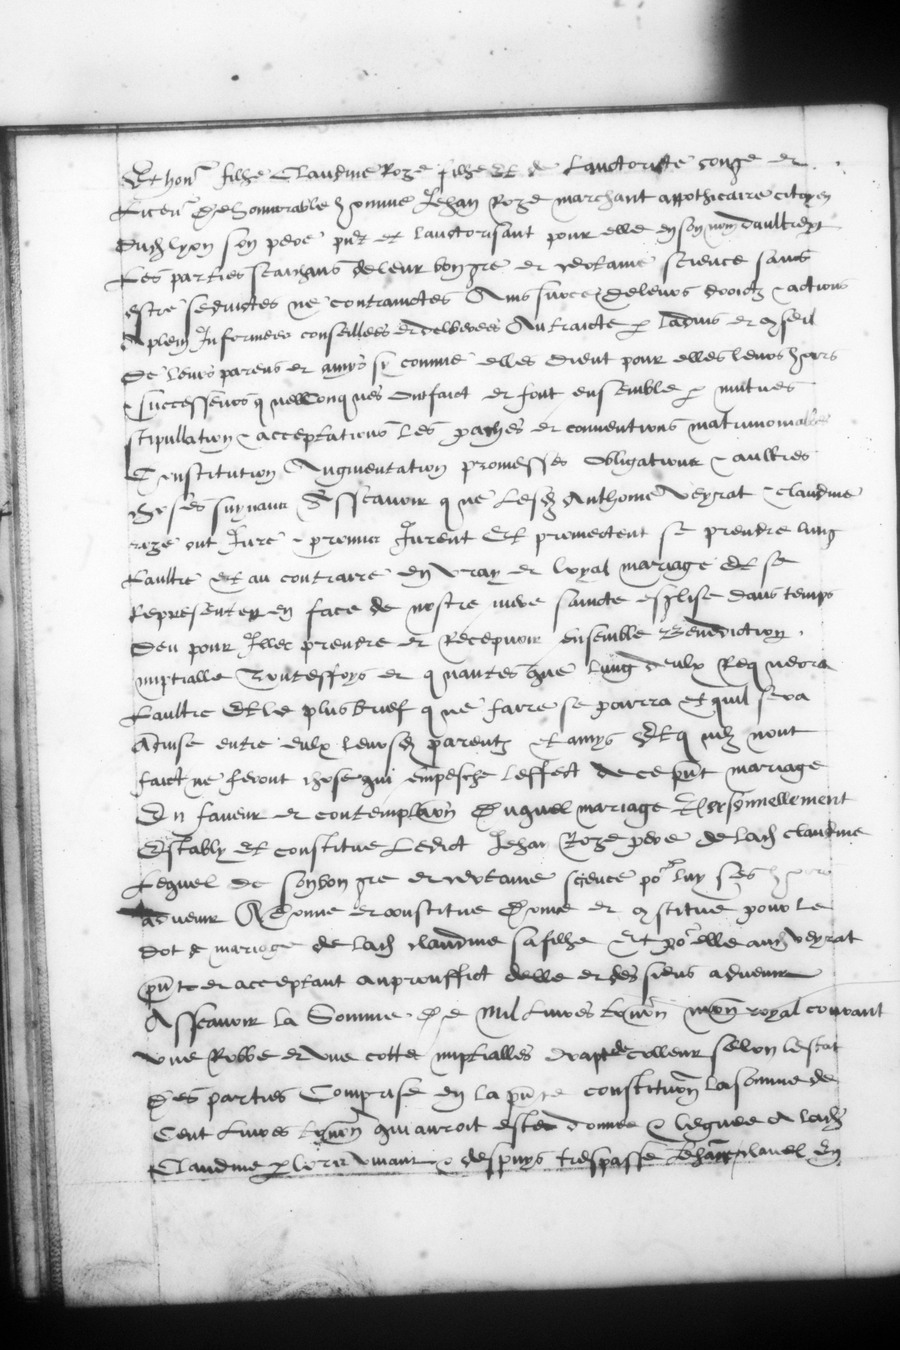 Et hon. filhe Claudine Roze filhe et de lauctorite conge et
licen. de honnorable homme Jehan Roze marchant appothicaire citoyen
dud lyon son pere pnt et lauctorisant pour elle en son nom daultre pt
les parties scaichans de leur bon gre et certaine science sans
estre seduictes ne contrainctes Ains sur ce de leurs droictz & actions
a plein Informees conseillees et deliberees Au traicte p ladvis et conseil
de leurs parens et amys sy comme elles dient pour elles leurs hoirs
& successeurs quelconques ont faict et font ensemble p mutues
stipullation & acceptations les paches et conventions matrimonialles
Constitution Augmentation promesses obligations & aultres
choses suyvans Asscavoir que lesd Anthoine Veyrat & Claudine
roze ont Jure & promis Jurent et promectent se prendre lung
laultre et au contraire en vray et loyal mariage et se
representer en face de nostre mere saincte esglise dans temps
deu pour Illec prendre et recepvoir ensemble Benediction
nuptialle Touteffoys et quantes que lung deulx requerra
laultre et le plus brief que faire se pourra et quil sera
advise entre eulx leursd parentz et amys et quilz nont
faict ne feront chose qui empesche leffect de ce pnt mariage
En faveur et contemplaon duquel mariage personnellement
estably et constitue ledict Jehan Roze pere de lad claudine
lequel de son bon gre et certaine science po. luy ses hoirs
advenir A donne et constitue donne et constitue pour le
dot de mariage de lad claudine sa filhe et po. elle aud veyrat
pnt et acceptant au prouffict delle et des siens advenir
Asscavoir la Somme de Mil livres tourn monn. royal courant
une Robbe et une cotte nuptialles drap de colleur selon lestat
des parties Comprise en la pnte constitution la somme de
Cent livres tourn qui auroit este donnee & leguee a lad
Claudine p & despuys trespasse Jehan clavel En